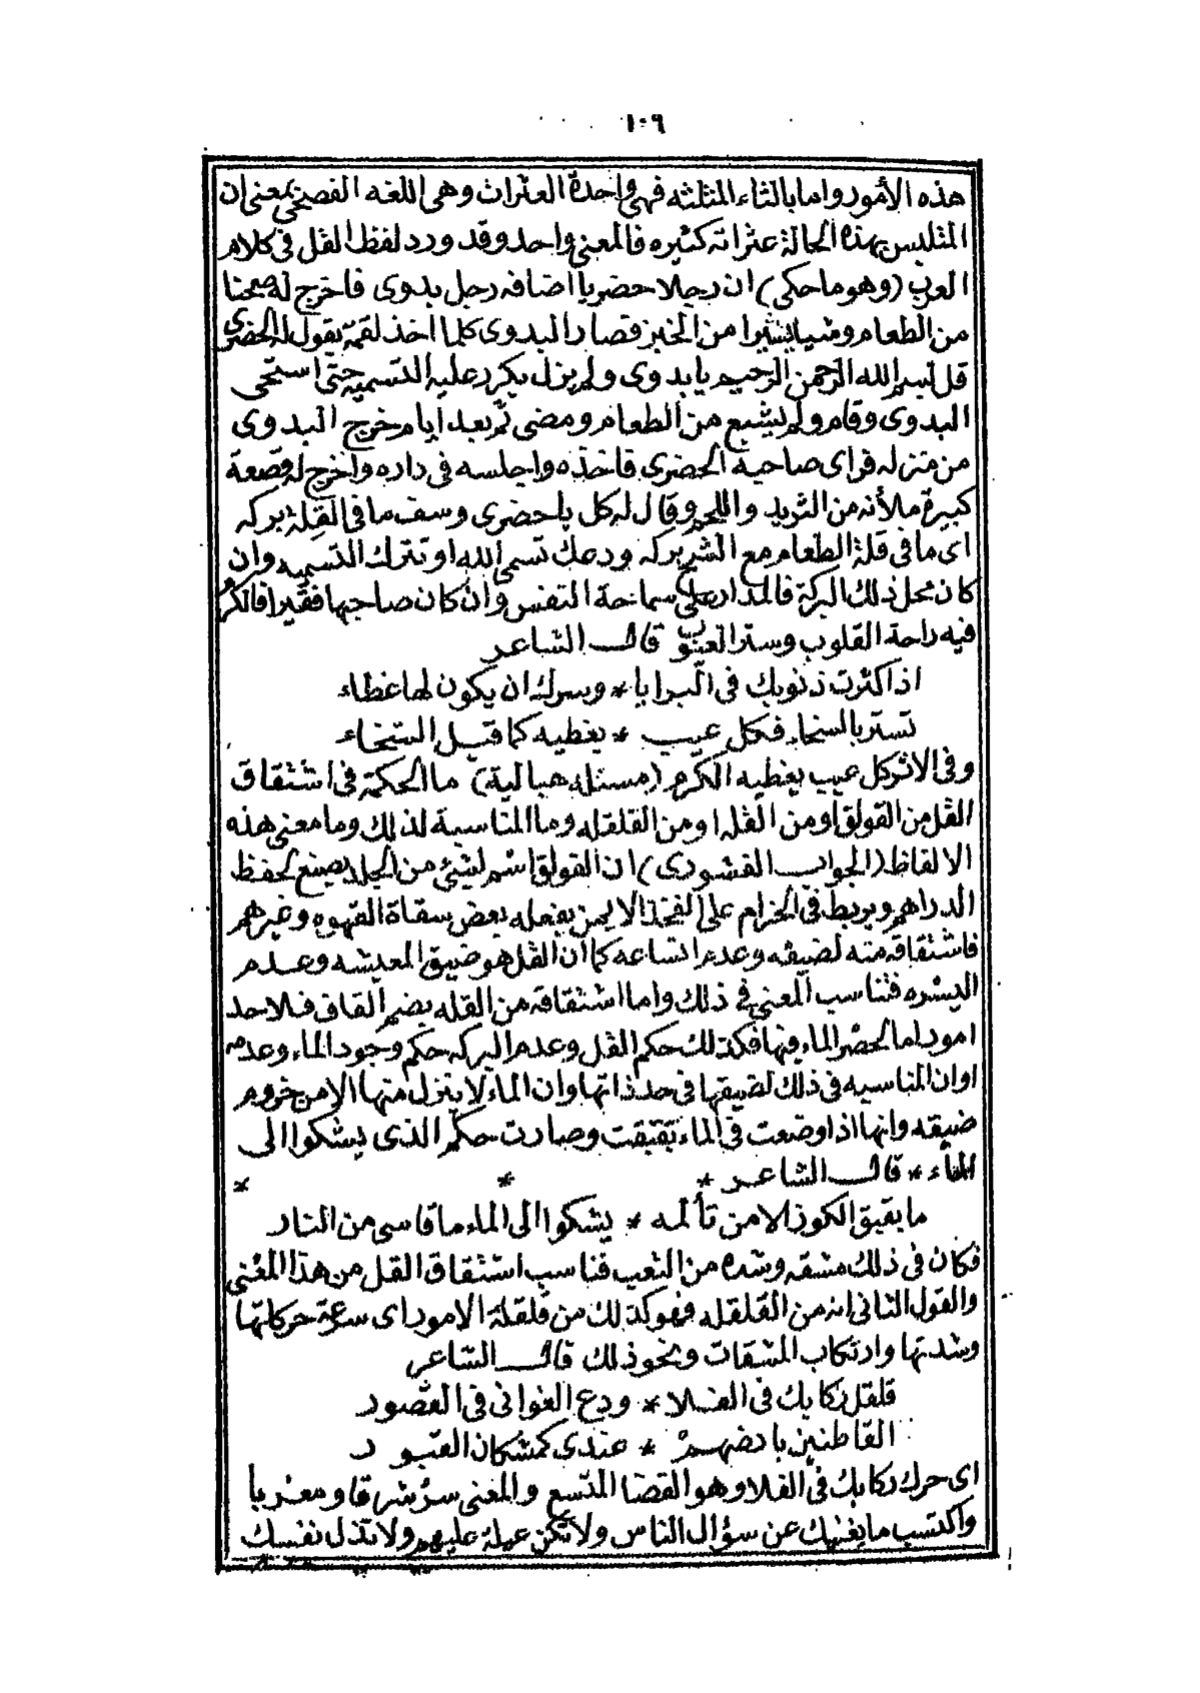 ١٠٦
هذه الأمور واما بالثاء المثلثه فهى واحدة العثرات وهى اللغه الفصحى بمعنى ان
المتلبس بهذه الحالة عثراته كثيره فالمعنى واحد وقد ورد لفظ القل فى كلام
العرب (وهو ما حكى) ان رجلا حضريا اضافه رجل بدوى فاخرج له صحنا
من الطعام وشيا يسيرا من الخبز فصار البدوى كلما اخذ لقمة يقول له الحضرى
قل بسم الله الرحمن الرحيم يا بدوى ولم يزل يكرر عليه التسميه حتى استحى
البدوى وقام ولم يشبع من الطعام ومضى ثم بعد ايام خرج البدوى
من منزله فراى صاحبه الحضرى فاخذه واجلسه فى داره واخرج له قصعة
كبيرة ملأنه من الثريد واللحم وقال له كل يا حضرى وسف ما فى القلة بركه
اى ما فى قلة الطعام مع الشح بركه ودعك تسمى الله او تترك التسميه وان
كان محل ذلك البركة فالمدار على سماحة النفس وان كان صاحبها فقيرا فالكرم
فيه راحة القلوب وستر العيوب قال الشاعر
اذا كثرت ذنوبك فى البرايا * وسرك ان يكون لها غطاء
تستر بالسخاء فكل عيب * يغطيه كما قيل السخاء
وفى الاثر كل عيب يغطيه الكرم (مسئله هباليه) ما الحكمة فى اشتقاق
القل من القولق او من القله او من القلقله وما المناسبة لذلك وما معنى هذه
الالفاظ (الجواب الفشودى) ان القولق اسم لشئ من الجلد يصنع لحفظ
الدراهم ويربط فى الحزام على الفخذ الايمن يفعله بعض سقاة القهوه وغيرهم
فاشتقاقه منه لضيقه وعدم اتساعه كما ان القل هو ضيق المعيشه وعدم
اليسره فتناسب المعنى فى ذلك واما اشتقاقه من القله بضم القاف فلاحد
امور اما لحصر الماء فيها فكذلك حكم القل وعدم البركه حكم وجود الماء وعدمه
او ان المناسبه فى ذلك لضيقها فى حد ذاتها وان الماء لا ينزل منها الا من خروم
ضيقه وانها اذا وضعت فى الماء بقبقت وصارت حكم الذى يشكوا الى
الماء * قال الشاعر * * *
ما بقبق الكوز الا من تألمه * يشكوا الى الماء ما قاسى من النار
فكان فى ذلك مشقه وشده من التعب فناسب اشتقاق القل من هذا المعنى
والقول الثانى انه من القلقله فهو كذلك من قلقلة الامور اى سرعة حركاتها
وشدتها وارتكاب المشقات ونحو ذلك قال الشاعر
قلقل ركابك فى الفلا * ودع الغوانى فى القصور
القاطنين بارضهم * عندى كسكان القبور
اى حرك ركابك فى الفلا وهو الفضا المتسع والمعنى سر شرقا ومغربا
واكتسب ما يغنيك عن سؤال الناس ولا تكن عيلة عليهم ولا تذل نفسك